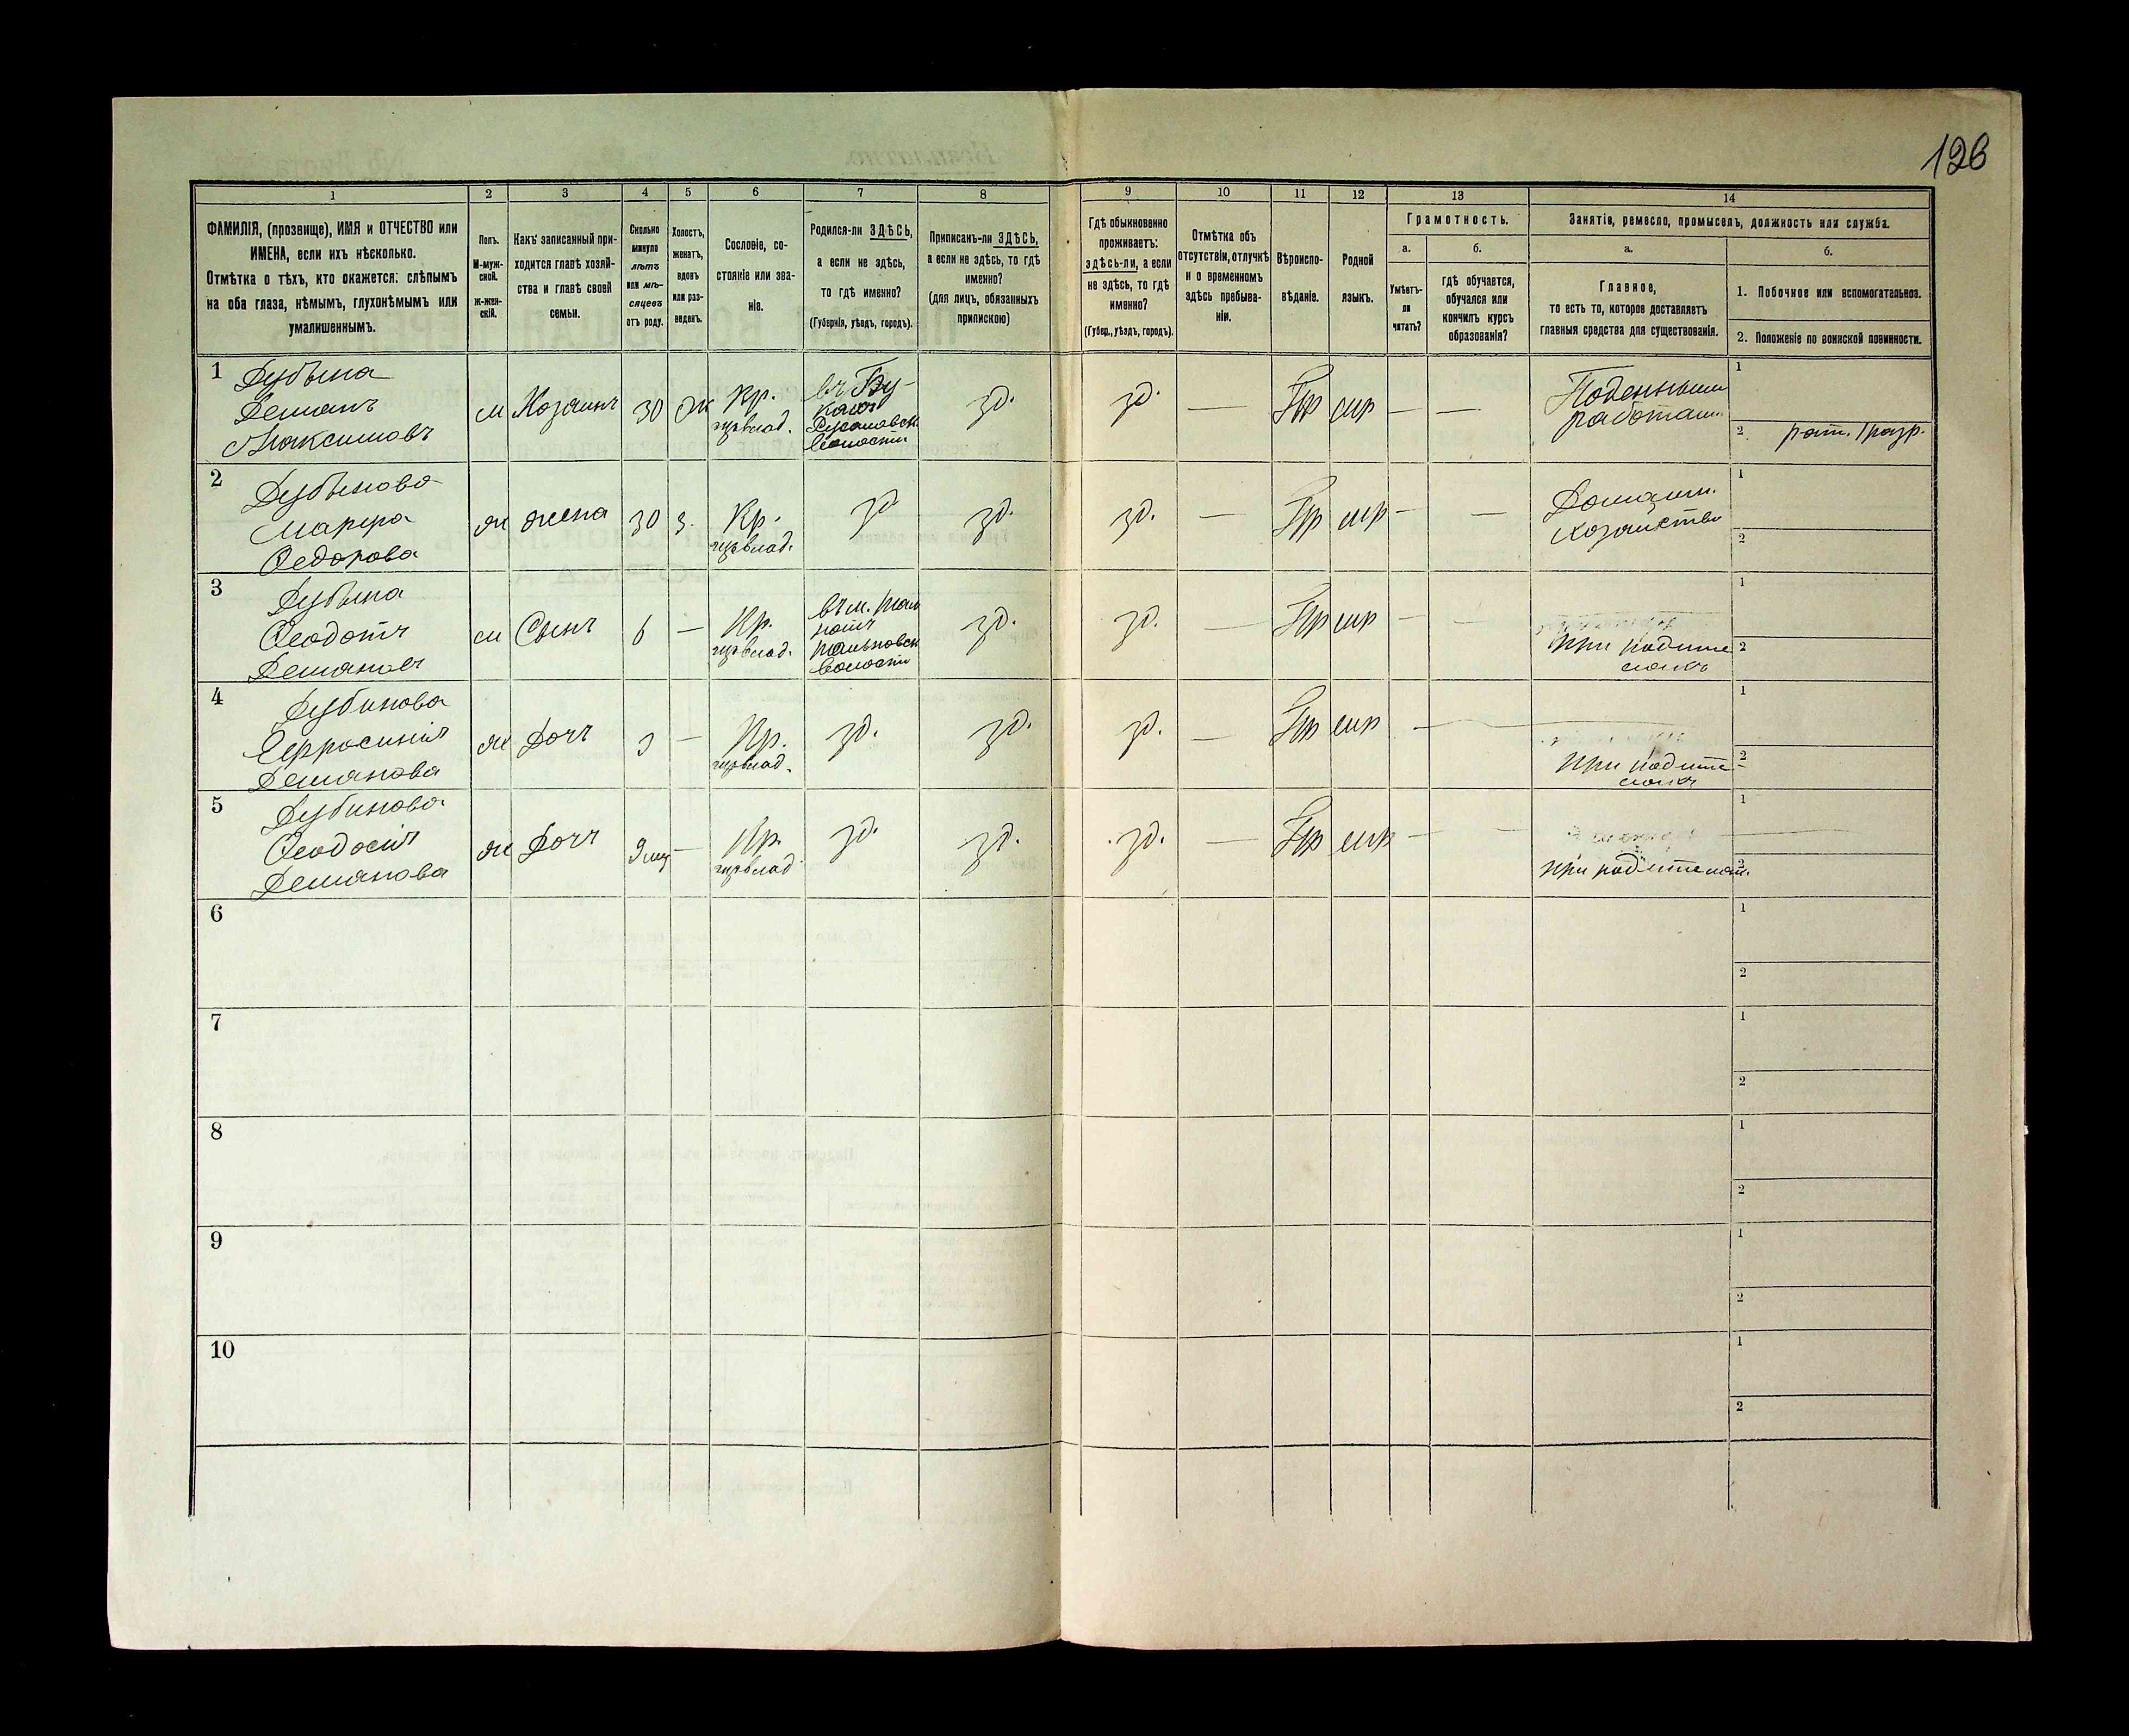 126
1
2
3
4
5
6
7
8
9
10
11
12
13
14
ФАМИЛІЯ, (прозвище), ИМЯ и ОТЧЕСТВО или
ИМЕНА, если ихъ нѣсколько.
Отмѣтка о тѣхъ, кто окажется: слѣпымъ
на оба глаза, нѣмымъ, глухонѣмымъ или
умалишеннымъ.
Полъ.
М-муж-
ской.
ж-жен-
скій.
Какъ записанный при-
ходится главѣ хозяй-
ства и главѣ своей
семьи.
Сколько
минуло
лѣтъ
или мѣ-
сяцевъ
отъ роду.
Холостъ,
женатъ,
вдовъ
или раз-
веденъ.
Сословіе, со-
стояніе или зва-
ніе.
Родился-ли ЗДѢСЬ,
а если не здѣсь,
то гдѣ именно?
(Губернія, уѣздъ, городъ).
Приписанъ-ли ЗДѢСЬ,
а если не здѣсь, то гдѣ
именно?
(для лицъ, обязанныхъ
припискою)
Гдѣ обыкновенно
проживаетъ:
здѣсь-ли, а если
не здѣсь, то гдѣ
именно?
(Губер., уѣздъ, городъ).
Отмѣтка объ
отсутствіи, отлучкѣ
и о временномъ
здѣсь пребыва-
ніи.
Вѣроиспо-
вѣданіе.
Родной
языкъ.
Грамотность.
а.
б.
Умѣетъ-
ли
читать?
гдѣ обучается,
обучался или
кончилъ курсъ
образованія?
Занятіе, ремесло, промыселъ, должность или служба.
а.
б.
Главное,
то есть то, которое доставляетъ
главныя средства для существованія.
1. Побочное или вспомогательное.
2. Положеніе по воинской повинности.
1
Дубына
Демянъ
Максимовъ
м
Хозаинъ
30
ж
Кр.
въ Бу-
Волости
зд.
зд.
—
Пр
мр
—
—
Поденныи
1
2
рат. 1 разр.
2
Дубынова
Марфа
Федорова
ж
жена
30
з.
Кр.
зд
зд.
зд.
—
Пр
мр
—
—
Домашн.
хозайство
1
2
3
Дубына
Феодотъ
Демяновъ
м
Сынъ
6
—
Кр.
Волости
зд.
зд.
—
Пр
мр
—
—
при родите
лахъ
1
2
4
Дубинова
Ефросинія
Демянова
ж
Дочъ
3
—
Кр.
зд.
зд.
зд.
—
Пр
мр
—
при родите-
лахъ
1
2
5
Дубинова
Феодосія
Демянова
ж
Дочъ
9 мц
—
Кр.
зд.
зд.
зд.
—
Пр
мр
—
—
при родителах.
1
2
6
1
2
7
1
2
8
1
2
9
1
2
10
1
2